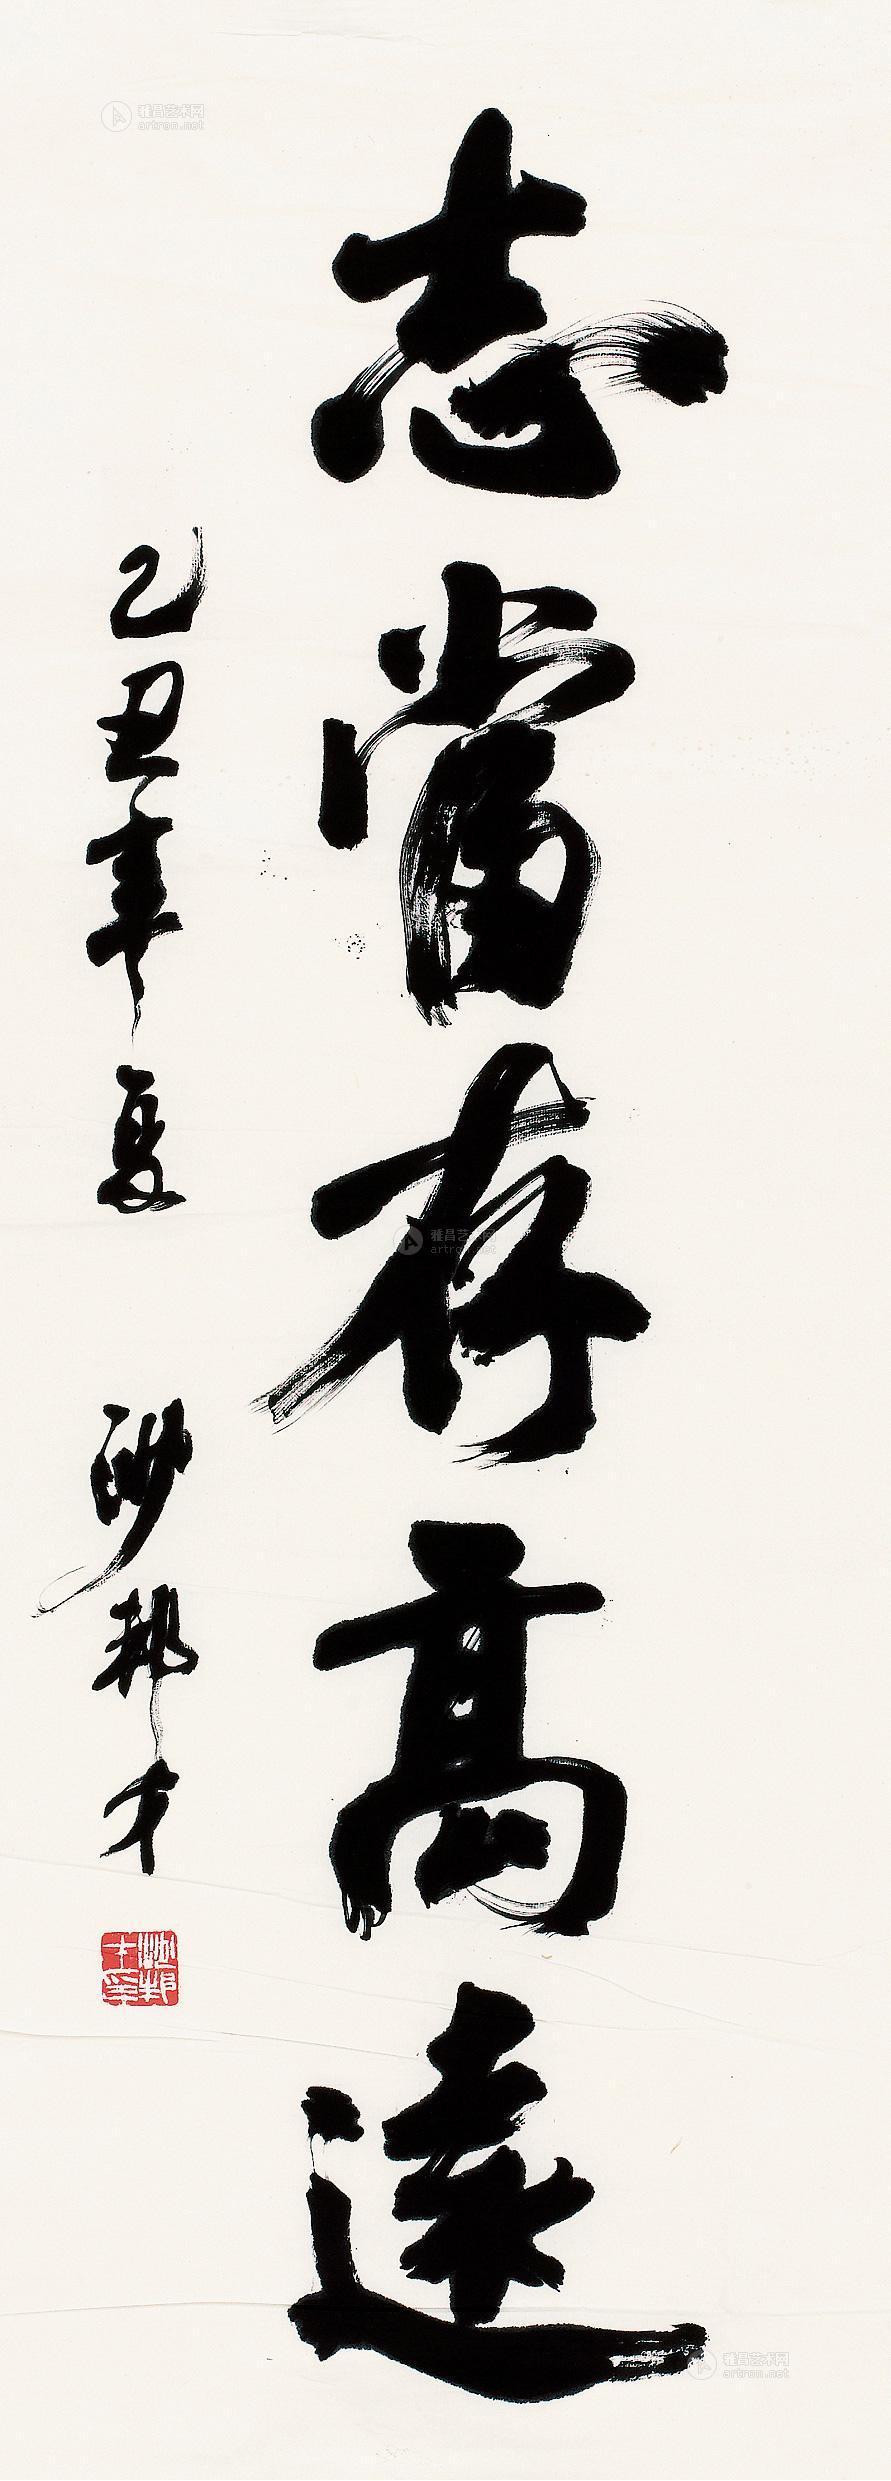 志當存高遠
乙丑年夏
邦才
雅昌艺术网
artron.net
雅昌艺术网
artron.net
雅昌艺术网
artron.net